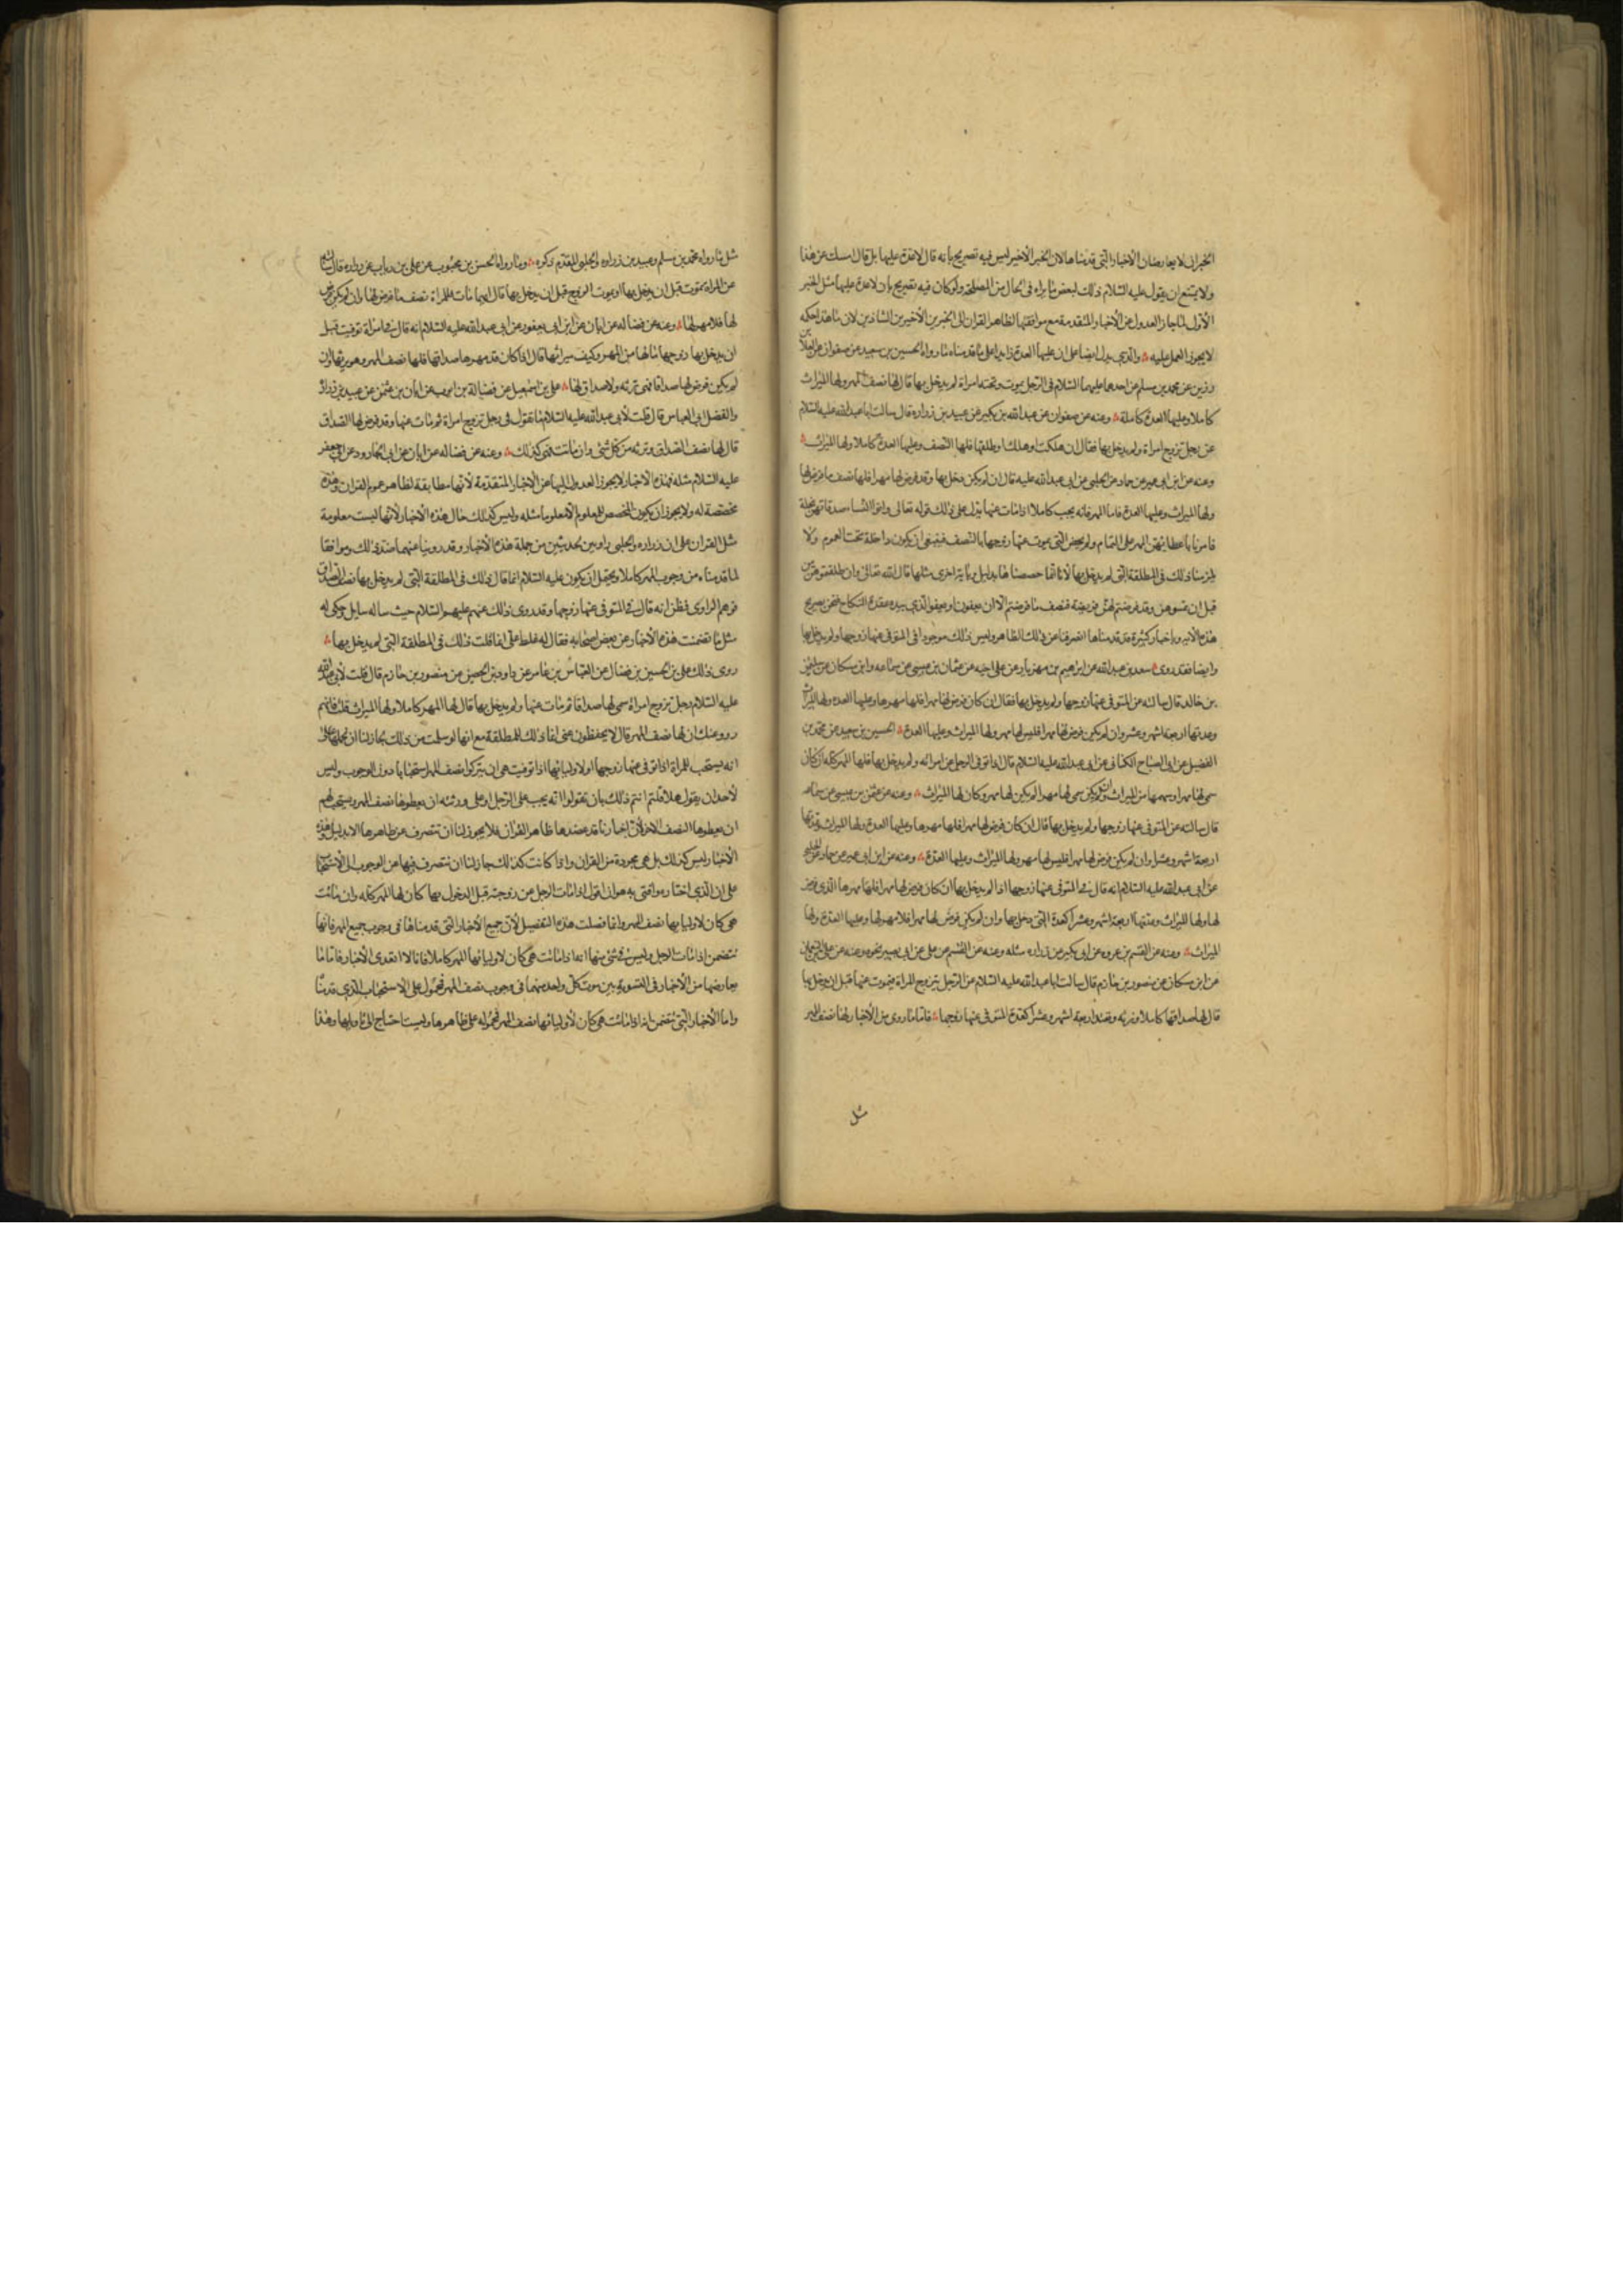 الخبران لا يعارضان الأخبار التى قدمناها لان الخبر الاخير ليس فيه تصريح بأنه قال لاعدة عليها بل قال امسك عن هذا
ولا يمتنع ان يقول عليه السلام ذلك لبعض مايراه فى الحال من المصلحة ولو كان فيه تصريح بان لاعدة عليها مثل الخبر
الأول لما جاز العدول عن الأخبار المتقدمة مع موافقتها لظاهر القران الى الخبرين الأخيرين الشاذين لان ماهذا حكمه
لا يجوز العمل عليه والذى يدل ايضا على ان عليها العدة زايدا على ما قدمناه ما رواه الحسين بن سعيد عن صفوان عن العلا بن
رزين عن محمد بن مسلم عن احدهما عليهما السلام فى الرجل يموت وتحته امراة لم يدخل بها قال لها نصف المهر ولها الميراث
كاملا وعليها العدة كاملة وعنه عن صفوان عن عبدالله بن بكير عن عبيد بن زرارة قال سالت ابا عبدالله عليه السلام
عن رجل تزوج امراة ولم يدخل بها فقال ان هلكت او هلك او طلقها فلها النصف وعليها العدة كاملا ولها الميراث
وعنه عن ابن ابى عمير عن حماد عن الحلبى عن ابى عبدالله عليه قال ان لم يكن دخل بها وقد فرض لها مهرا فلها نصف ما فرض لها
ولها الميراث وعليها العدة فاما المهر فانه يجب كاملا اذا مات عنها يدل على ذلك قوله تعالى واتوا النسا صدقاتهن نحلة
فامرنا باعطائهن المهر على التمام ولم يخص التى يموت عنها زوجها بالنصف فينبغى ان يكون داخلة تحت العموم ولا
يلزمنا ذلك فى المطلقة التى لم يدخل بها لانا انما خصصنا لها بدليل وباية اخرى مثلها قال الله تعالى وان طلقتموهن من
قبل ان تمسوهن وقد فرضتم لهن فريضة فنصف ما فرضتم الا ان يعفون او يعفو الذى بيده عقدة النكاح فنحن بصريح
هذه الاية وباخبار كثيرة قد قدمناها انصرفنا عن ذلك الظاهر وليس ذلك موجودا فى المتوفى عنها زوجها ولم يدخل بها
وايضا فقد روى سعد بن عبدالله عن ابرهيم بن مهزيار عن على اخيه عن عثمان بن عيسى عن سماعه وابن مسكان عن سليمن
بن خالد قال سالته عن المتوفى عنها زوجها ولم يدخل بها فقال ان كان فرض لها مهرا فلها مهرها وعليها العدة ولها الميراث
وعدتها اربعة اشهر وعشر وان لم يكن فرض لها مهرا فليس لها مهر ولها الميراث وعليها العدة الحسين بن سعيد عن محمد بن
الفضيل عن ابى الصباح الكنانى عن ابى عبدالله عليه السلام قال اذا توفى الرجل عن امراته ولم يدخل بها فلها المهر كله ان كان
سمى لها مهرا وسهمها من الميراث وان لم يكن سمى لها مهرا لم يكن لها مهر وكان لها الميراث وعنه عن عثمن بن عيسى عن سماعه
قال سالته عن المتوفى عنها زوجها ولم يدخل بها قال ان كان فرض لها مهرا فلها مهرها وعليها العدة ولها الميراث وعدتها
اربعة اشهر وعشرا وان لم يكن فرض لها مهرا فليس لها مهر ولها الميراث وعليها العدة وعنه عن ابن ابى عمير عن حماد عن الحلبى
عن ابى عبدالله عليه السلام انه قال فى المتوفى عنها زوجها اذا لم يدخل بها ان كان فرض لها مهرا فلها مهرها الذى فرض
لها ولها الميراث وعدتها اربعة اشهر وعشرا كعدة التى دخل بها وان لم يكن فرض لها مهرا فلا مهر لها وعليها العدة ولها
الميراث وعنه عن القسم بن عروه عن ابى بكير عن زراره مثله وعنه عن القسم عن على عن ابى بصير نحوه وعنه عن على بن النعمان
عن ابن مسكان عن منصور بن حازم قال سالت ابا عبدالله عليه السلام عن الرجل يتزوج المراة فيموت عنها قبل ان يدخل بها
قال لها صداقها كاملا وترثه وتعتد اربعة اشهر وعشرا كعدة المتوفى عنها زوجها فاما ما روى من الأخبار لها نصف المهر
مثل
مثل ما رواه محمد بن مسلم وعبيد بن زراره والحلبى المقدم ذكره وما رواه الحسن بن محبوب عن على بن رياب عن زراره قال سالته
عن المراة تموت قبل ان يدخل بها او يموت الزوج قبل ان يدخل بها قال ايهما مات فللمراة نصف ما فرض لها وان لم يكن فرض
لها فلا مهر لها وعنه عن فضاله عن ابان عن ابن ابى يعفور عن ابى عبدالله عليه السلام انه قال فى امراة توفيت قبل
ان يدخل بها زوجها مالها من المهر وكيف ميراثها قال اذا كان قد مهرها صداقها فلها نصف المهر وهو يرثها وان
لم يكن فرض لها صداقا فهى ترثه ولا صداق لها على بن اسمعيل عن فضالة بن ايوب عن ابان بن عثمن عن عبيد بن زراره
والفضل ابى العباس قال قلت لأبى عبدالله عليه السلام ما تقول فى رجل تزوج امراة ثم مات عنها وقد فرض لها الصداق
قال لها نصف الصداق وترثه من كل شئ وان ماتت فهى كذلك وعنه عن فضاله عن ابان عن ابى الجارود عن ابى جعفر
عليه السلام مثله فهذه الاخبار لايجوز العدول اليها عن الاخبار المتقدمة لأنها مطابقة لظاهر عموم القران وهذه
مخصصة له ولا يجوز ان يكون المخصص للمعلوم الا معلوما مثله وليس كذلك حال هذه الأخبار لأنها ليست معلومة
مثل القران على ان زراره والحلبى راويين لحديثين من جملة هذه الأخبار وقد روينا عنهما ضد ذلك وموافقا
لما قدمناه من وجوب المهر كاملا ويحتمل ان يكون عليه السلام انما قال ذلك فى المطلقة التى لم يدخل بها نصف الصداق
فوهم الراوى فظن انه قال فى المتوفى عنها زوجها وقد روى ذلك عنهم عليهم السلام حيث ساله سايل وحكى له
مثل ما تضمنت هذه الأخبار عن بعض اصحابه فقال له غلط على انما قلت ذلك فى المطلقة التى لم يدخل بها
روى ذلك على بن الحسين بن فضال عن العباس بن عامر عن داود بن الحصين عن منصور بن حازم قال قلت لأبى عبدالله
عليه السلام رجل تزوج امراة سمى لها صداقا ثم مات عنها ولم يدخل بها قال لها المهر كاملا ولها الميراث قلت فانهم
رووا عنك ان لها نصف المهر قال لا يحفظون عنى انما ذلك للمطلقة مع انها لو سلمت من ذلك لجاز لنا ان نحملها على
انه يستحب للمراة اذا توفى عنها زوجها او لاوليائها اذا توفيت هى ان يتركوا نصف المهر استحبابا دون الوجوب وليس
لأحد ان يقول هلا قلتم انتم ذلك بان تقولوا انه يجب على الرجل او على ورثته ان يعطوها نصف المهر ويستحب لهم
ان يعطوها النصف الاخر لأن اخبارنا قد عضدها ظاهر القران فلا يجوز لنا ان ننصرف عن ظاهرها الا بدليل وهذه
الأخبار ليس كذلك بل هى مجردة من القران واذا كانت كذلك جاز لنا ان ننصرف فيها من الوجوب الى الاستحباب
على ان الذى اختاره وافتى به هو ان اقول اذا مات الرجل عن زوجته قبل الدخول بها كان لها المهر كله وان ماتت
هى كان لاوليائها نصف المهر وانما فصلت هذه التفصيل لأن جميع الأخبار التى قدمناها فى وجوب جميع المهر فانها
تتضمن اذا مات الرجل وليس فى شئ منها انها اذا ماتت هى كان لاوليائها المهر كاملا فانا لا اتعدى الأخبار فاما ما
يعارضها من الأخبار فى التسوية بين موت كل واحد منهما فى وجوب نصف المهر فمحمول على الاستحباب الذى قدمناه
واما الأخبار التى تتضمن انه اذا ماتت هى كان لأوليائها نصف المهر فمحمولة على ظاهرها ولست احتاج الى تاويلها وهذا